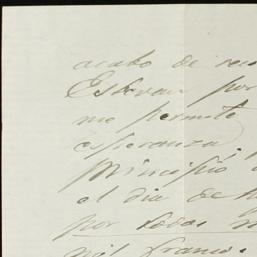 acabo de rec
Esteran por
me permite
esperanza
principió
el dia de h
por todos m
mil francos